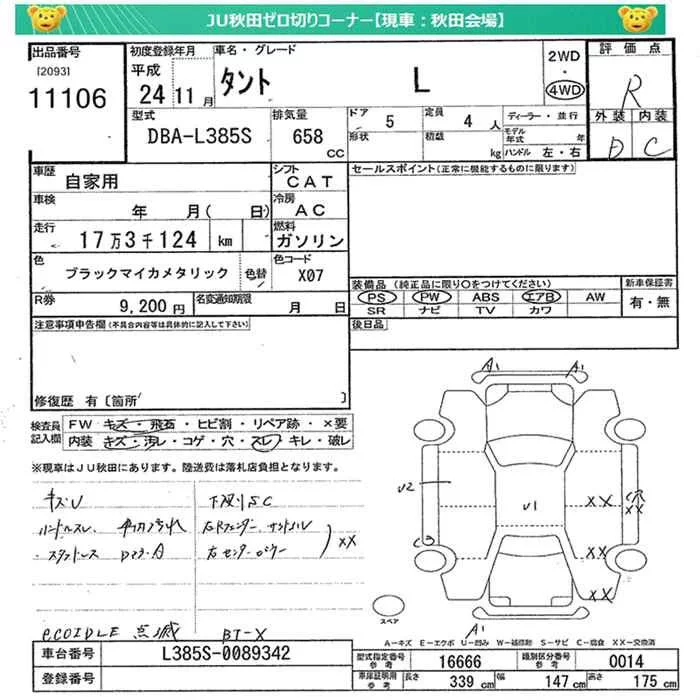 JU秋田ゼロ切りコーナー【現車：秋田会場】
出品番号 初度登録年月 車名・グレード 2WD 評価点
[2093] 平成 タント L ・ R
11106 24 11月 4WD 外装 内装
型式 排気量 ドア 5 定員 4 人 ディーラー・並行 D C
DBA-L385S 658 CC 形状 積載 kg モデル年式 年
ハンドル 左・右
車歴 自家用 シフト CAT セールスポイント(正常に機能するものに限ります)
車検 年 月( 日) 冷房 AC
走行 17万3千124 km 燃料 ガソリン
色 ブラックマイカメタリック 色替 色コード X07
装備品 (純正品に限り○をつけてください) 新車保証書
R券 9,200円 名変通知期限 月 日 PS PW ABS エアB AW 有・無
SR ナビ TV カワ
注意事項申告欄(不具合内容等は具体的に記入して下さい) 後日品
修復歴 有[箇所 ]
検査員記入欄 FW キズ・飛石・ヒビ割・リペア跡・×要
内装 キズ・汚レ・コゲ・穴・スレ・キレ・破レ
※現車はJU秋田にあります。陸送費は落札店負担となります。
キズU 下廻りSC
ハンドルスレ
××
ECOIDLE 点滅 BT-X
A1 A1
U2 U1 ×× 穴 ××
××
××
A1
スペア
A-キズ E-エクボ U-凹み W-補修跡 S-サビ C-腐食 XX-交換済
車台番号 L385S-0089342 型式指定番号 参考 16666 類別区分番号 参考 0014
登録番号 車庫証明用 参考 長さ 339 cm 幅 147 cm 高さ 175 cm